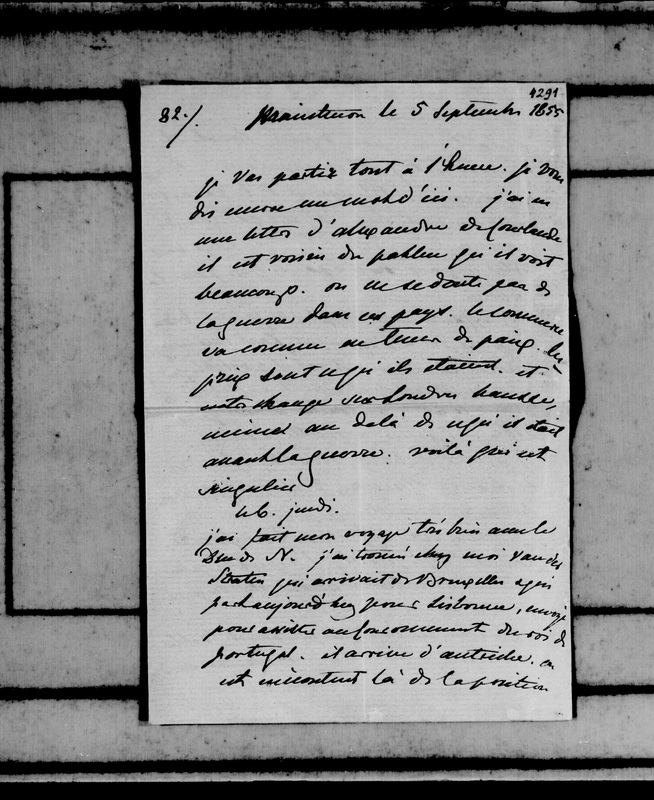 4291
82./. Maintenon le 5 Septembre 1855
je vais partir tout à l'heure. je vous
dis encore un mot d'ici. j'ai eu
une lettre d'alexandre de Courlande
il est voisin du pahlen qu'il voit
beaucoup. on ne se doute pas de
la guerre dans ces pays. le commerce
va comme en tems de paix. les
prix sont ce qu'ils étaient. et
notre change sur Londres hausse,
même au delà de ce qu'il était
avant la guerre. voilà qui est
singulier
le 6. jeudi.
j'ai fait mon voyage très bien avec le
Duc de N. j'ai trouvé chez moi Van der
Straten qui arrivait de Bruxelles & qui
part aujourd'hui pour Lisbonne, envoyé
pour assister au couronnement du roi de
portugal. il arrive d'autriche. on
est mécontent là de la position